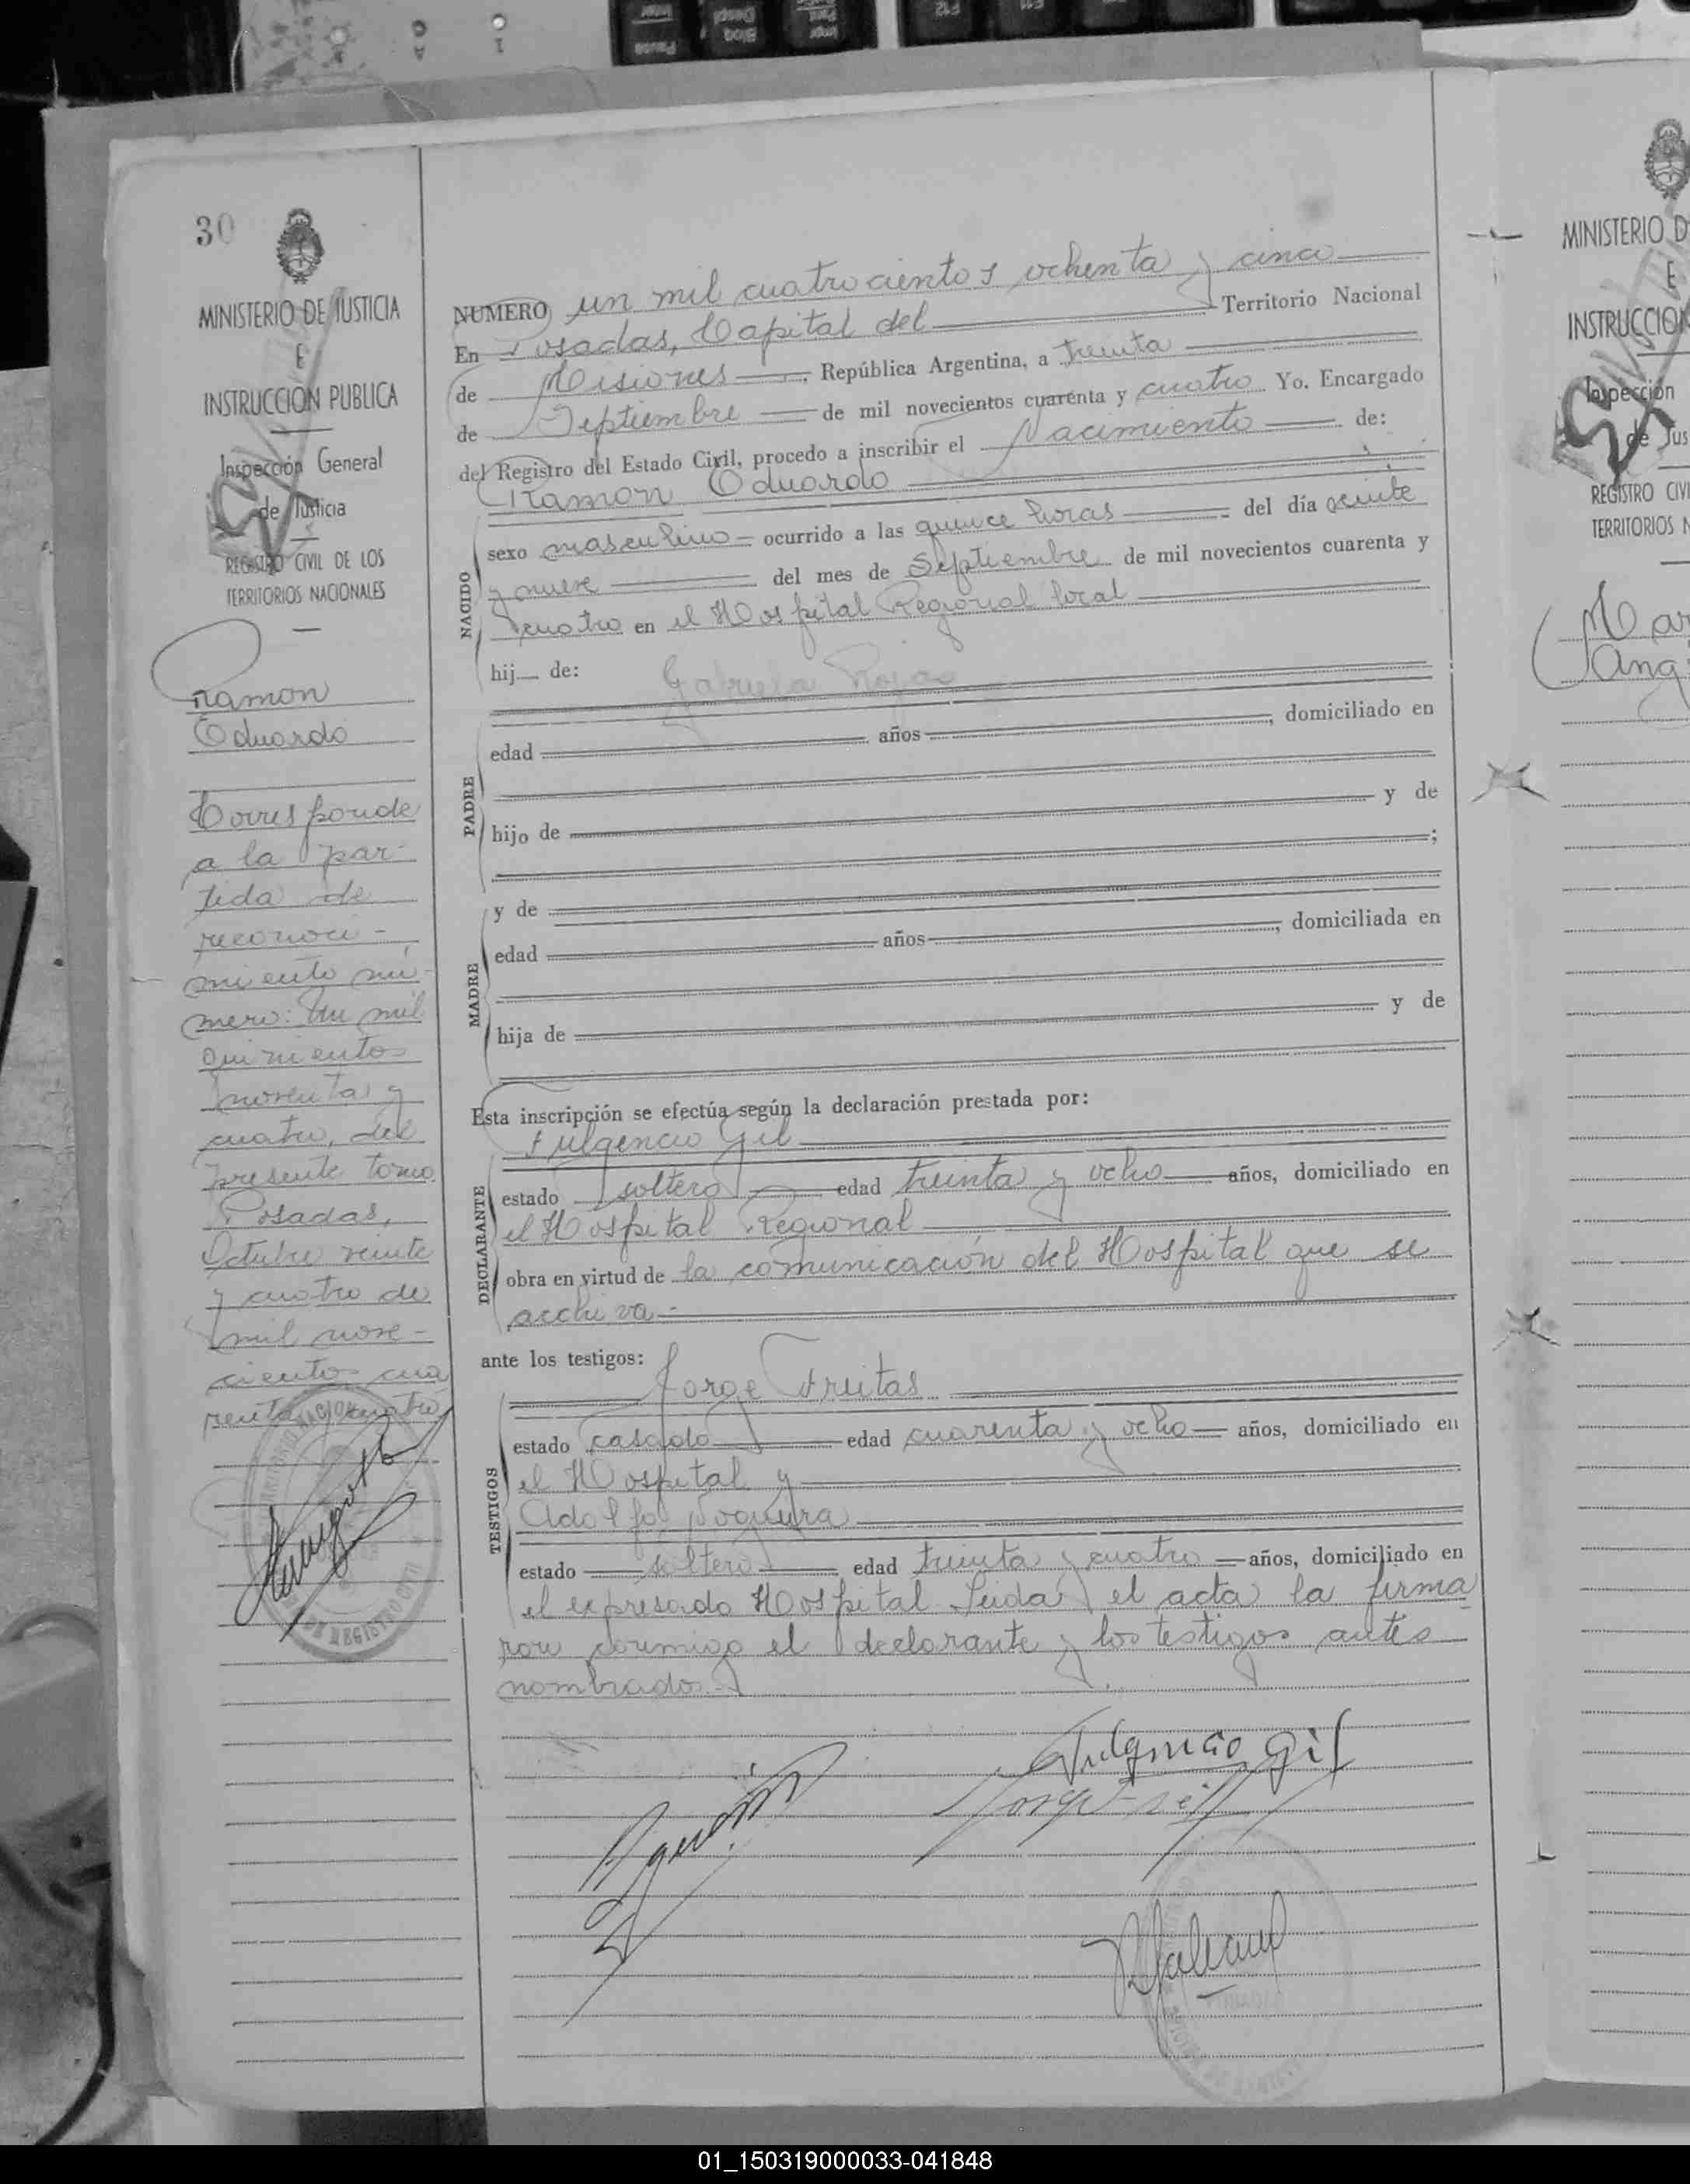 30
MINISTERIO DE JUSTICIA
E
INSTRUCCION PUBLICA
Inspección General
de Justicia
REGISTRO CIVIL DE LOS
TERRITORIOS NACIONALES
Ramon
Eduardo
Corresponde
a la par-
tida de
reconoci-
miento nú-
mero: Un mil
quinientos
noventa y
cuatro, del
presente tomo
Posadas,
Octubre veinte
y cuatro de
mil nove-
cientos cua
renta y cuatro
NUMERO un mil cuatrocientos ochenta y cinco
En Posadas, Capital del Territorio Nacional
de Misiones, República Argentina, a treinta
de Septiembre de mil novecientos cuarenta y cuatro Yo. Encargado
del Registro del Estado Civil, procedo a inscribir el Nacimiento de:
Ramon Eduardo
NACIDO
sexo masculino ocurrido a las quince horas del día veinte
y nueve del mes de Septiembre de mil novecientos cuarenta y
cuatro en el Hospital Regional local
hij de: Gabriela Rojas
PADRE
edad años, domiciliado en
hijo de y de
;
MADRE
y de
edad años, domiciliada en
hija de y de
Esta inscripción se efectúa según la declaración prestada por:
Fulgencio Gil
DECLARANTE
estado soltero edad treinta y ocho años, domiciliado en
el Hospital Regional
obra en virtud de la comunicación del Hospital que se
archiva.-
ante los testigos:
Jorge Freitas
TESTIGOS
estado casado edad cuarenta y ocho años, domiciliado en
el Hospital y
Adolfo Noguera
estado soltero edad treinta y cuatro años, domiciliado en
el expresado Hospital Leida el acta la firma
ron conmigo el declarante y los testigos antes
nombrados.-
Fulgencio Gil
MINISTERIO D
E
INSTRUCCION
Inspección
de Jus
REGISTRO CIVI
TERRITORIOS N
Mar
01_150319000033-041848